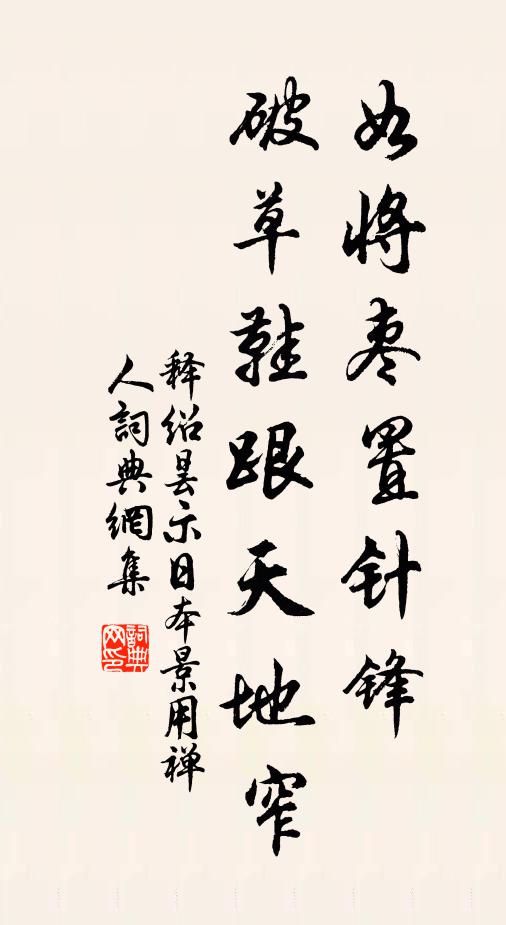 如將枣置针锋
破草鞋跟天地窄
释绍昙示日本景用禅
人詞典網集
詞典網印